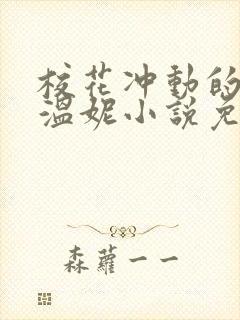 校花冲動的
溫妮小說免
森蘿一一